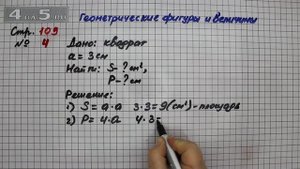 4on5.ru
Геометрические фигуры и величины
Стр. 109
№ 4
Дано: квадрат
а = 3 см
Найти: S - ? см²,
Р - ? см
Решение:
1) S = а · а 3 · 3 = 9 (см²) - площадь
2) Р = 4 · а 4 · 3 =